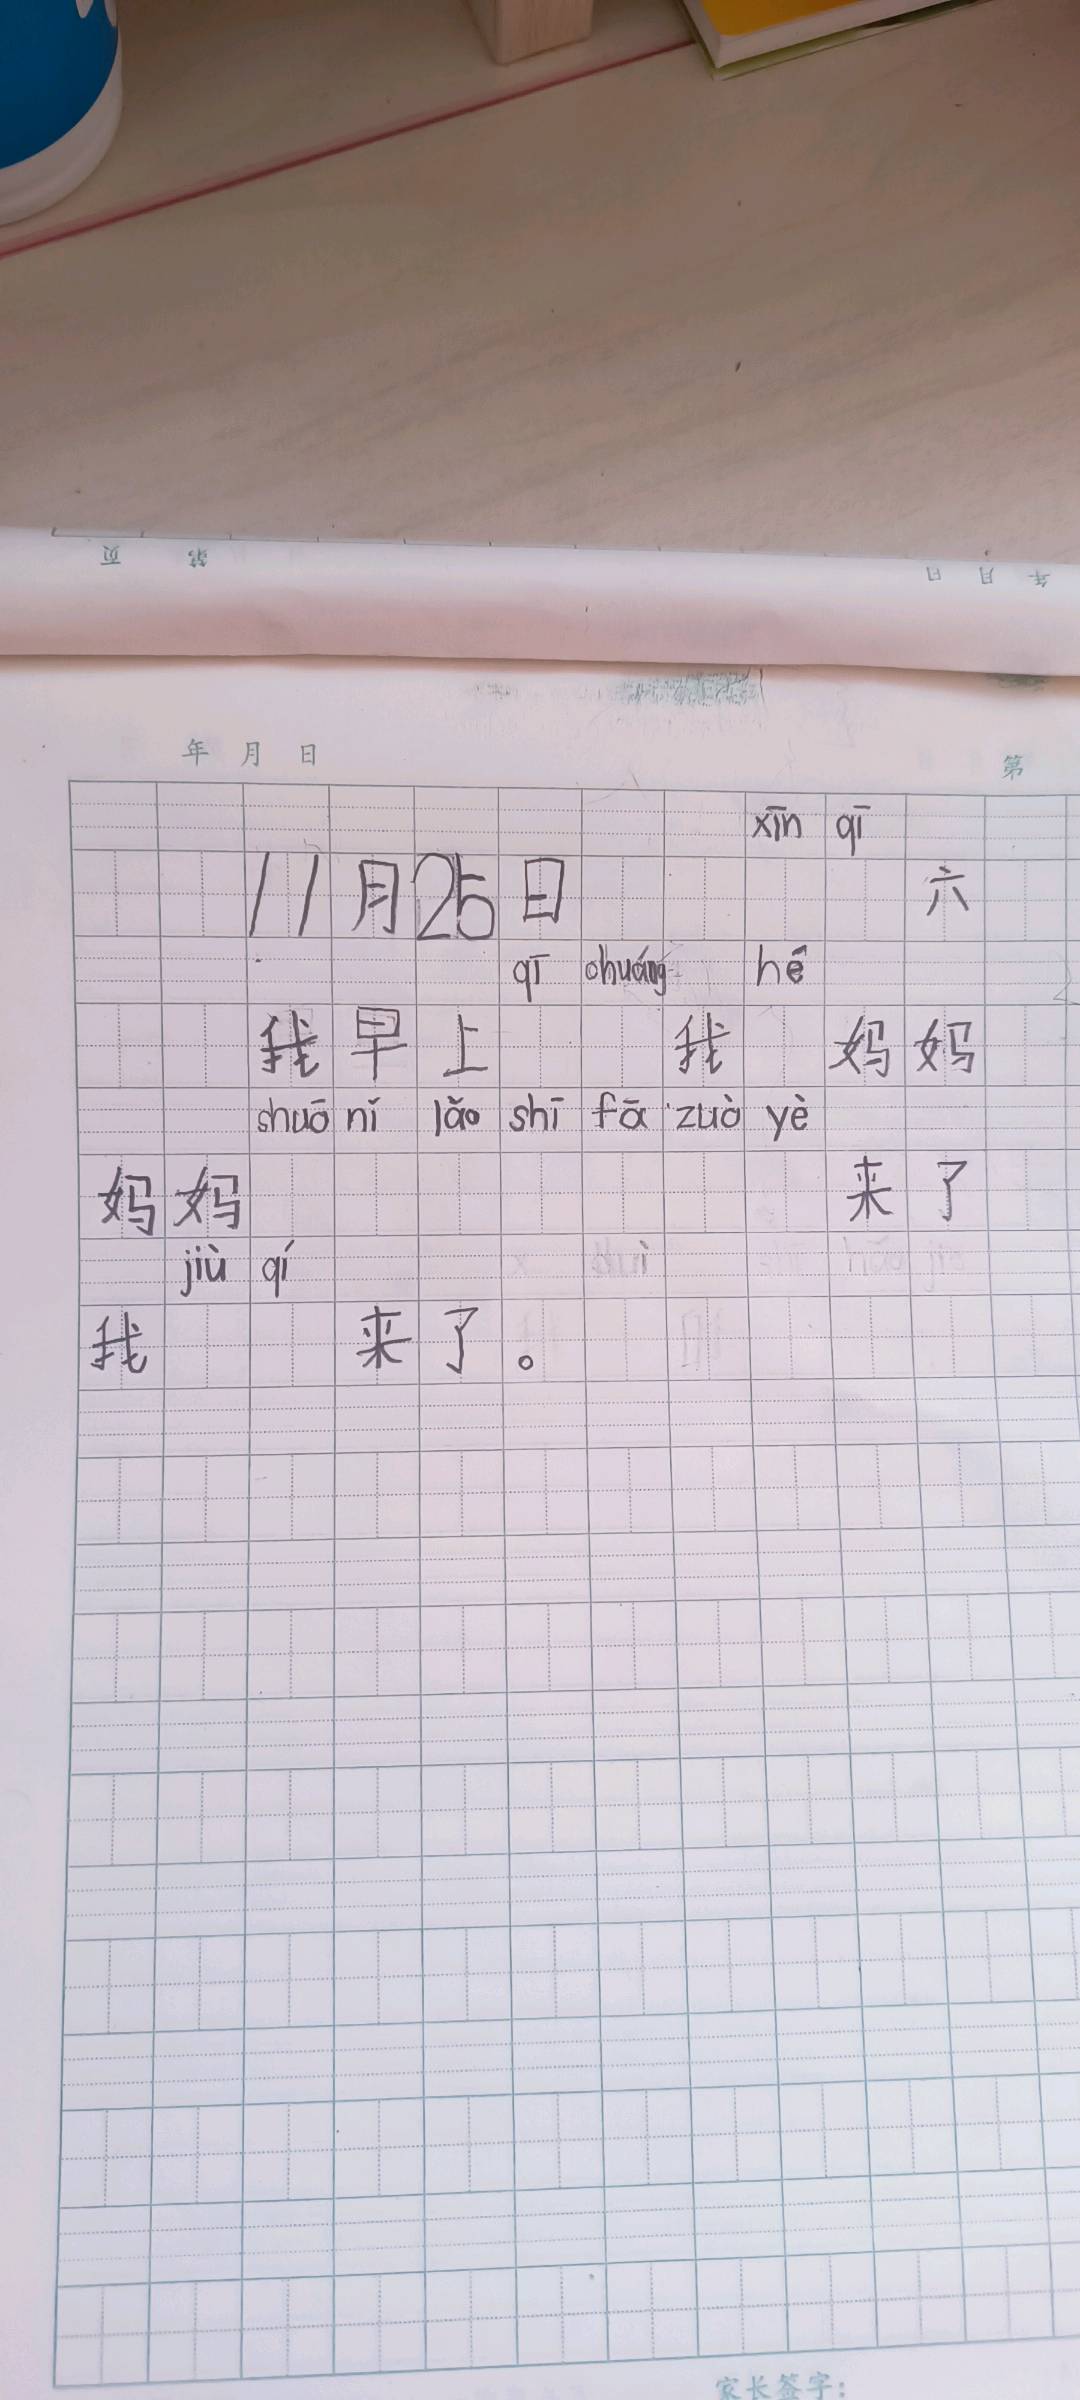 页 第 日 月 年
年 月 日 第
xīn qī
11月25日 六
qī chuáng hé
我早上 我 妈妈
shuō nǐ lǎo shī fā zuò yè
妈妈 来了
jiù qí
我 来了。
家长签字: